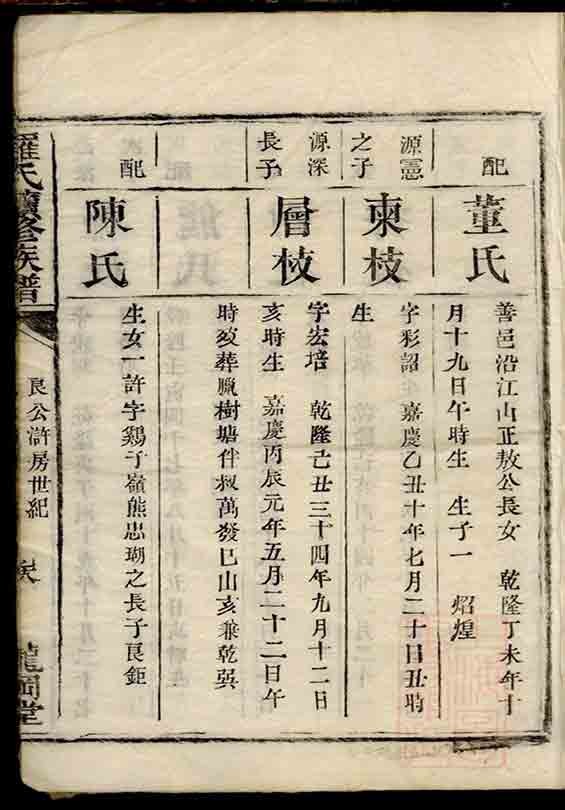 配
董氏
善邑沿江山正敖公長女　乾隆丁未年十
月十九日午時生　生子一　炤煌
源憲
之子
東枝
字彩詔　嘉慶乙丑十年七月二十日丑時
生
源深
長子
層枝
字宏培　乾隆己丑三十四年九月十二日
亥時生　嘉慶丙辰元年五月二十二日午
時歿葬臘樹塘伴叔萬發巳山亥兼乾巽
配
陳氏
生女一許字鷄子嶺熊忠瑚之長子良鉅
羅氏續修族譜
良公滸房世紀
龍岡堂